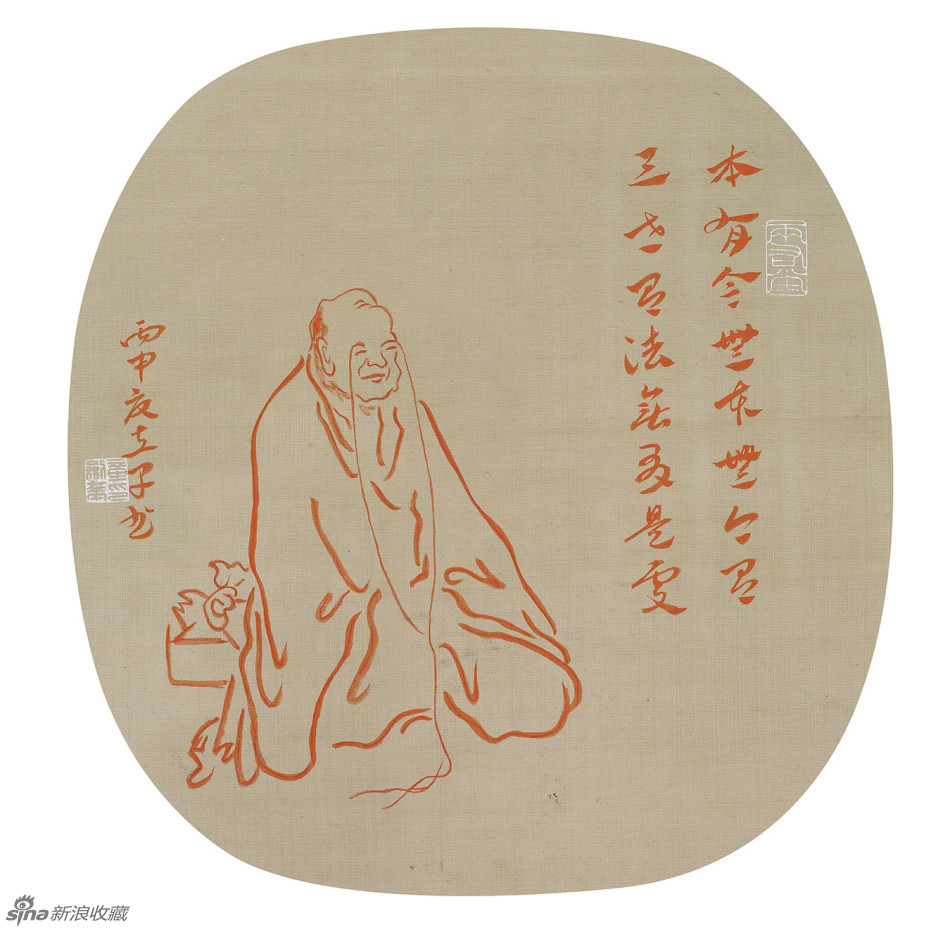 本有今無本無今有
三世有法無有是處
丙申
子书
sina新浪收藏